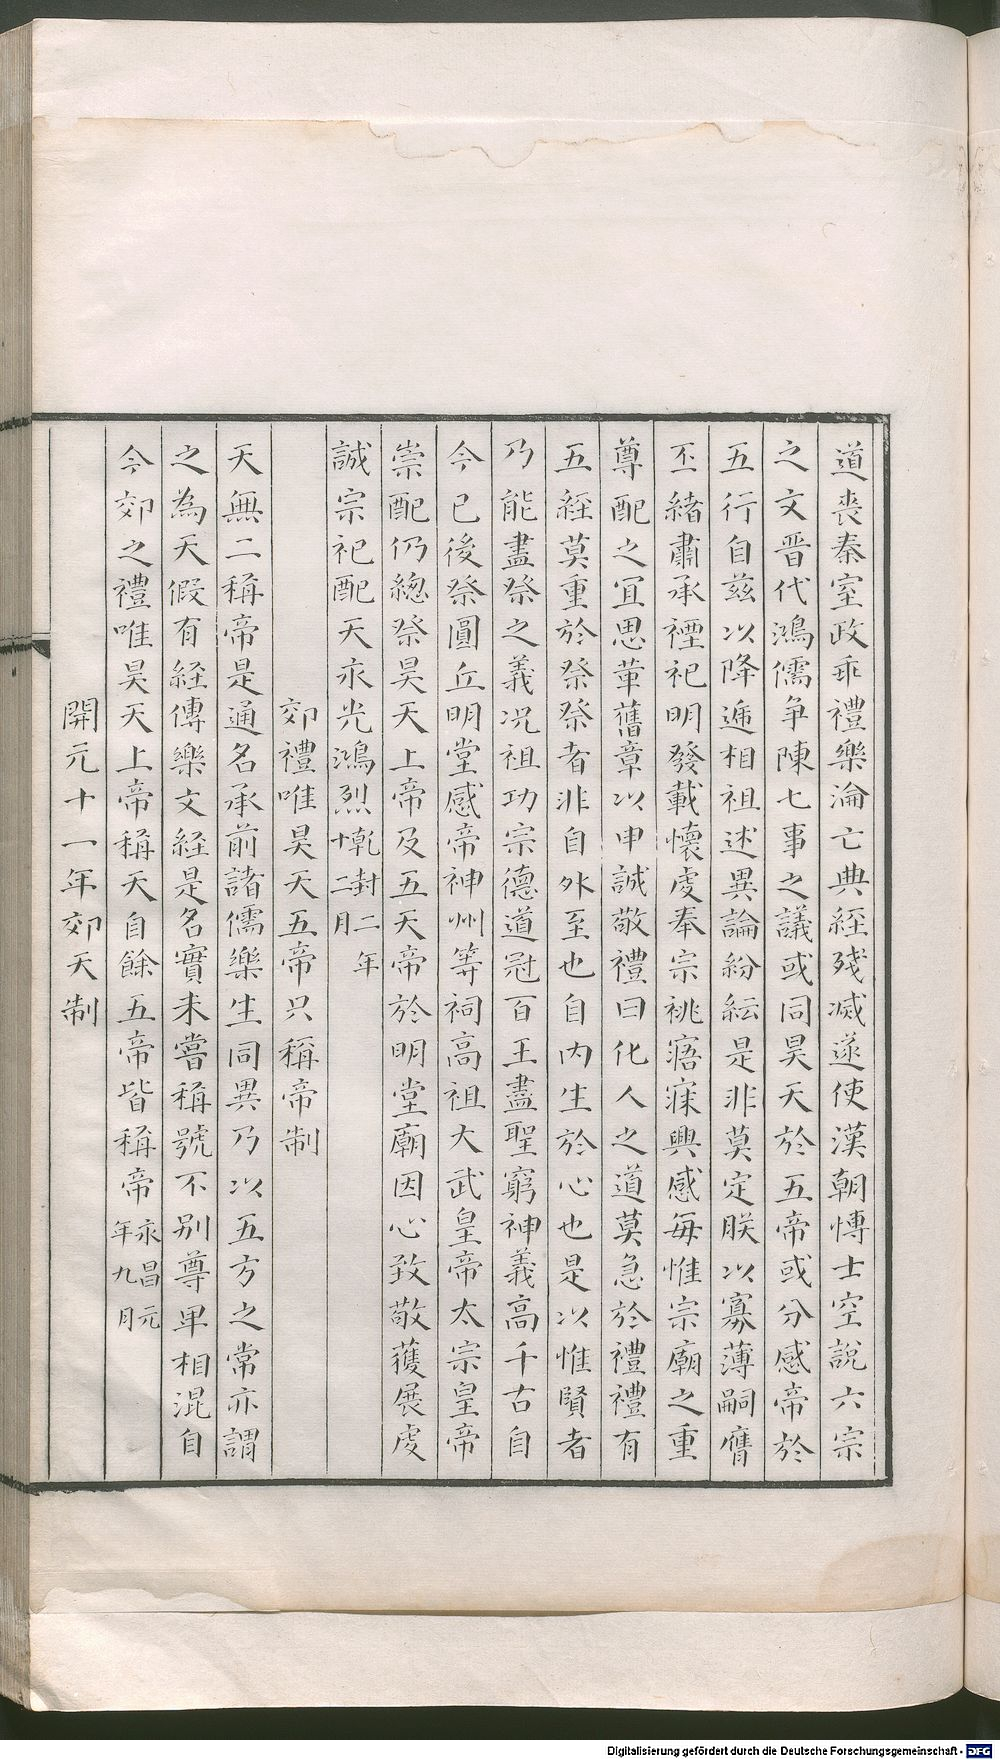 道喪秦室政乖禮樂淪亡典經殘滅遂使漢朝博士空說六宗
之文晋代鴻儒争陳七事之議或同昊天於五帝或分感帝於
五行自茲以降遞相祖述異論紛紜是非莫定朕以寡薄嗣膺
丕緒肅承禋祀明發載懷虔奉宗祧寤寐興感每惟宗廟之重
尊配之宜思革舊章以申誠敬禮曰化人之道莫急於禮禮有
五經莫重於祭祭者非自外至也自内生於心也是以惟賢者
乃能盡祭之義况祖功宗德道冠百王盡聖窮神義高千古自
今已後祭圓丘明堂感帝神州等祠高祖大武皇帝太宗皇帝
崇配仍總祭昊天上帝及五天帝於明堂廟因心致敬獲展虔
誠宗祀配天永光鴻烈乾封二年十二月
郊禮唯昊天五帝只稱帝制
天無二稱帝是通名承前諸儒樂生同異乃以五方之常亦謂
之為天假有経傳樂文経是名實未嘗稱號不别尊卑相混自
今郊之禮唯昊天上帝稱天自餘五帝皆稱帝永昌元年九月
開元十一年郊天制
Digitalisierung gefördert durch die Deutsche Forschungsgemeinschaft - DFG